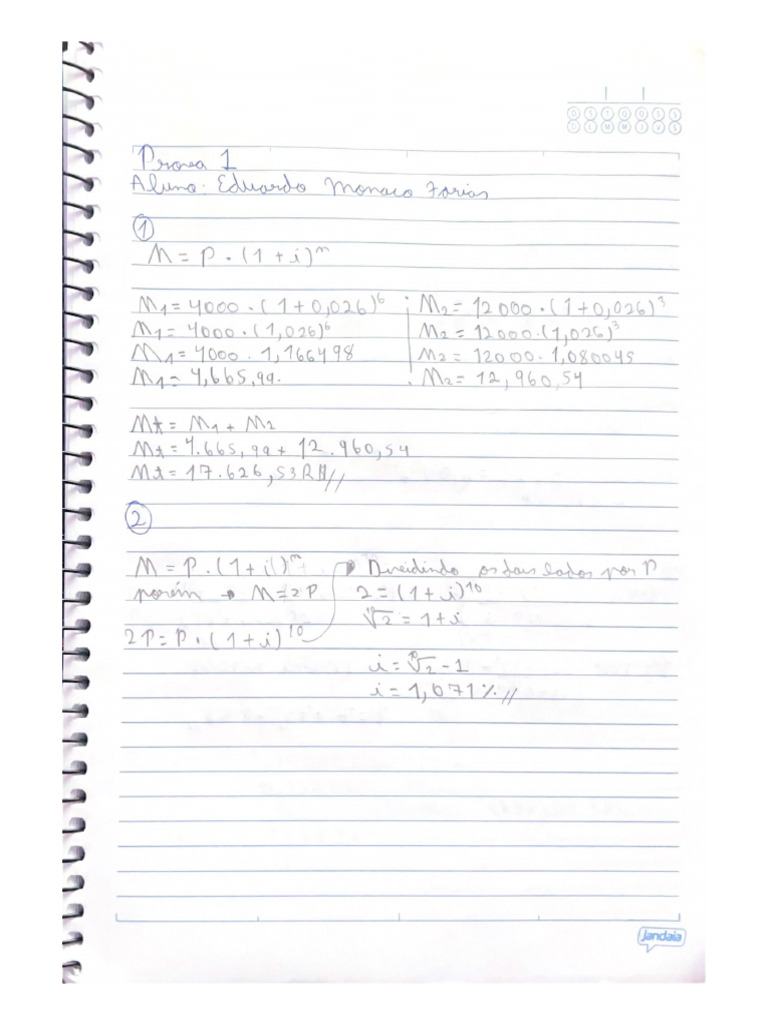 D S T Q Q S S
D L M M J V S
Prova 1
Aluno: Eduardo Monaco Farias
1
M = P . (1 + i)^n
M1 = 4000 . (1 + 0,026)^6
M1 = 4000 . (1,026)^6
M1 = 4000 . 1,166498
M1 = 4,665,99.
M2 = 12000 . (1 + 0,026)^3
M2 = 12000 . (1,026)^3
M2 = 12000 . 1,080045
M2 = 12,960,54
Mt = M1 + M2
Mt = 4.665,99 + 12.960,54
Mt = 17.626,53 R$//
2
M = P . (1 + i)^n
porém → M = 2P
2P = P . (1 + i)^10
Dividindo os dois lados por P
2 = (1 + i)^10
¹⁰√2 = 1 + i
i = ¹⁰√2 - 1
i = 1,071%//
jandaia